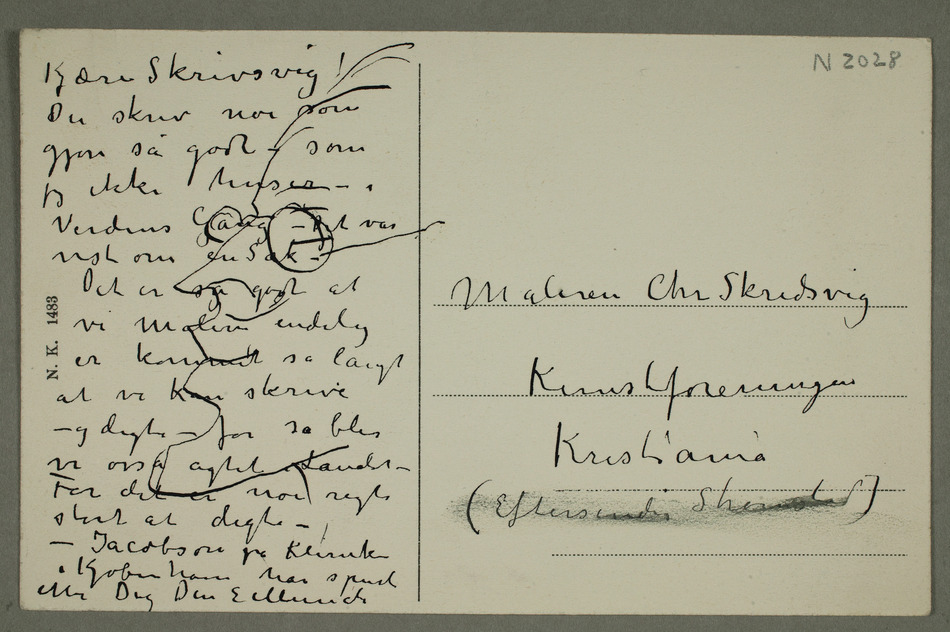 Kjære Skrivsvig!
Du skrev noe som
gjør så godt – som
jeg ikke huser – i
Verdens Gang – Det var
vist om en Sak –
Det er så godt at
vi Malere endelig
er kommet så langt
at vi kan skrive
– og digte – for så blir
vi også agtet i Landet –
For det er noe rigti
stort at digte –
– Jacobson på Kliniken
i Kjøbenhavn har spurt
efter Dig Din E Munch
N. K. 1483
N 2028
Maleren Chr Skredsvig
Kunstforeningen
Kristiania
(Eftersendes Strømsted)